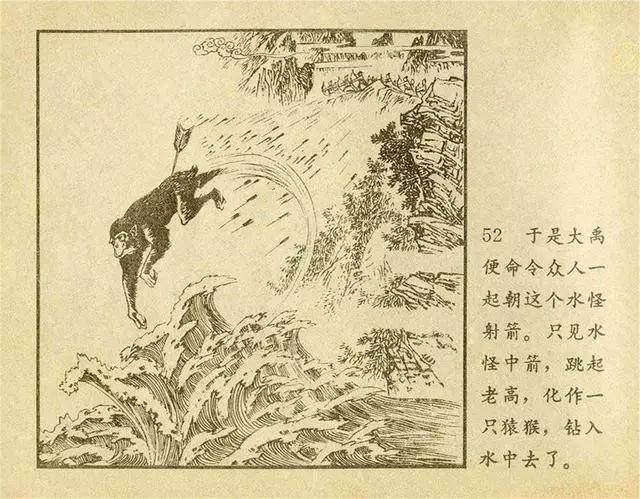 52 于是大禹
便命令众人一
起朝这个水怪
射箭。只见水
怪中箭，跳起
老高，化作一
只猿猴，钻入
水中去了。